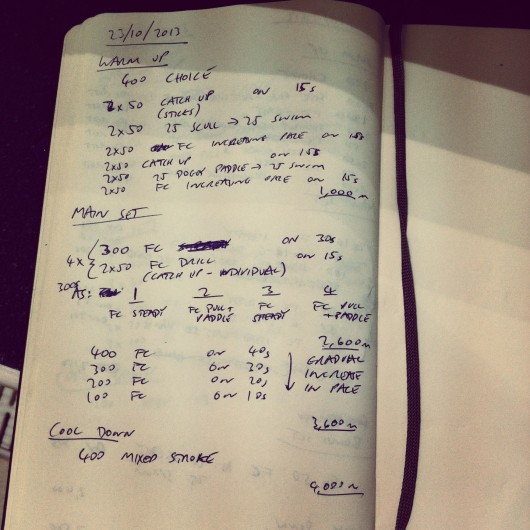 23/10/2013
WARM UP
400 CHOICE
2x50 CATCH UP ON 15s
(STICKS)
2x50 25 SCULL → 25 SWIM
2x50 FC INCREASING PACE ON 15s
2x50 CATCH UP ON 15s
2x50 25 DOGGY PADDLE → 25 SWIM
2x50 FC INCREASING PACE ON 15s
1,000m
MAIN SET
4x { 300 FC ON 30s
2x50 FC DRILL ON 15s
(CATCH UP - INDIVIDUAL)
300s AS: 1 2 3 4
FC STEADY FC PULL + PADDLE FC STEADY FC PULL + PADDLE
2,600m
400 FC ON 40s GRADUAL
300 FC ON 30s INCREASE
200 FC ON 20s IN PACE
100 FC ON 10s
3,600m
COOL DOWN
400 MIXED STROKE
4,000m